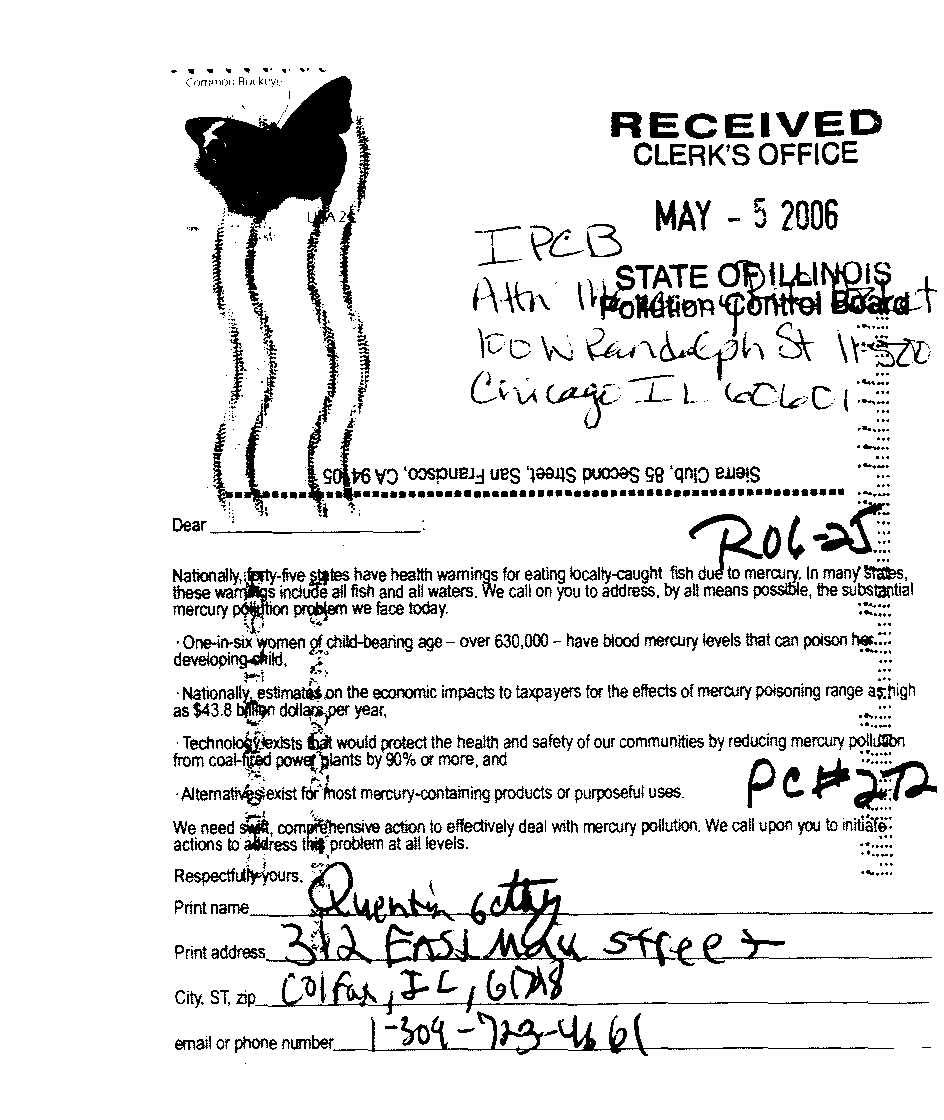 Common Buckeye
USA 24
RECEIVED
CLERK'S OFFICE
MAY - 5 2006
STATE OF ILLINOIS
Pollution Control Board
IPCB
Attn
100 W Randolph St 11-500
Chicago IL 60601
Sierra Club, 85 Second Street, San Francisco, CA 94105
Dear
R06-25
Nationally, forty-five states have health warnings for eating locally-caught fish due to mercury. In many states,
these warnings include all fish and all waters. We call on you to address, by all means possible, the substantial
mercury pollution problem we face today.
· One-in-six women of child-bearing age – over 630,000 – have blood mercury levels that can poison her
developing child,
· Nationally, estimates on the economic impacts to taxpayers for the effects of mercury poisoning range as high
as $43.8 billion dollars per year,
· Technology exists that would protect the health and safety of our communities by reducing mercury pollution
from coal-fired power plants by 90% or more, and
· Alternatives exist for most mercury-containing products or purposeful uses.
PC #272
We need swift, comprehensive action to effectively deal with mercury pollution. We call upon you to initiate
actions to address this problem at all levels.
Respectfully yours,
Print name Quentin
Print address 312 East Main Street
City, ST, zip Colfax, IL, 61728
email or phone number 1-309-723-4661